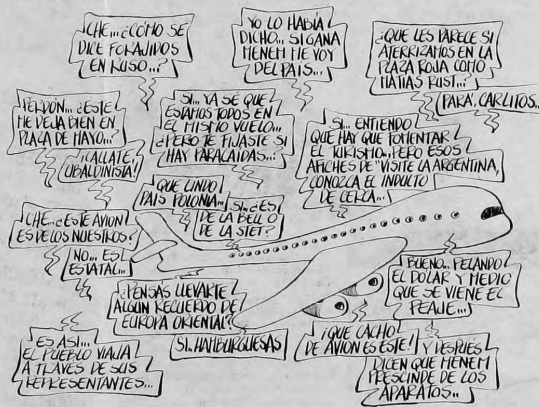 ¡CHE... ¿CÓMO SE
DICE FORAJIDOS
EN RUSO...?
YO LO HABÍA
DICHO... SI GANA
MENEM ME VOY
DEL PAIS...
¿QUE LES PARECE SI
ATERRIZAMOS EN LA
PLAZA ROJA COMO
MATIAS RUST...?
PARÁ, CARLITOS...
PERDÓN... ¿ESTE
ME DEJA BIEN EN
PLAZA DE MAYO...?
¡CALLATE,
UBALDINISTA!
SI... YA SE QUE
ESTAMOS TODOS EN
EL MISMO VUELO...
¿PERO TE FIJASTE SI
HAY PARACAIDAS...?
SI... ENTIENDO
QUE HAY QUE FOMENTAR
EL TURISMO... PERO ESOS
AFICHES DE "VISITE LA ARGENTINA,
CONOZCA EL INDULTO
DE CERCA...
QUE LINDO
PAIS POLONIA...
SI... ¿ES
DE LA BELL O
DE LA STET?
CHE... ¿ESTE AVION
ES DE LOS NUESTROS?
NO... ES
ESTATAL...
¿PENSAS LLEVARTE
ALGUN RECUERDO DE
EUROPA ORIENTAL?
SI... HAMBURGUESAS
BUENO... PELANDO
EL DOLAR Y MEDIO
QUE SE VIENE EL
PEAJE...
ES ASI...
EL PUEBLO VIAJA
A TRAVES DE SUS
REPRESENTANTES...
¡QUE CACHO
DE AVION ES ESTE!
Y DESPUÉS
DICEN QUE MENEM
PRESCINDE DE LOS
APARATOS..